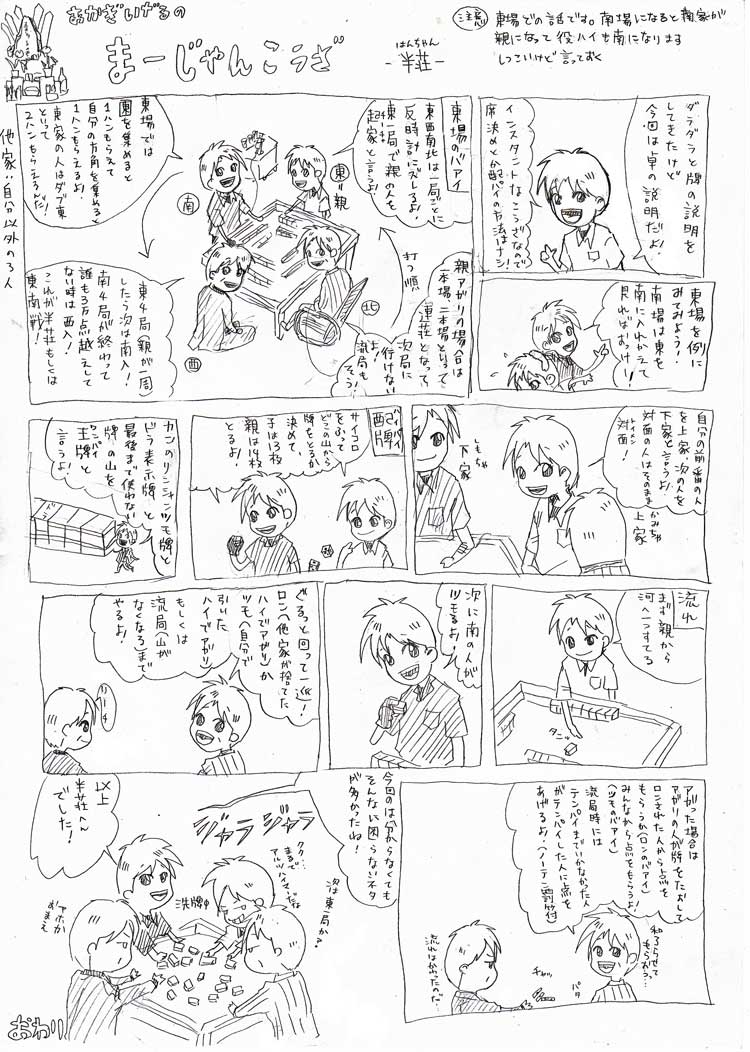 あかぎいげるの
まーじゃんこうざ
はんちゃん
-半荘-
注意
東場での話です。南場になると南家が
親になって役ハイも南になります
しつこいけど言っておく
ダラダラと牌の説明を
してきたけど
今回は卓の説明だよ!
インスタントなこうざなので
席決めとか配パイの方法はナシ!
東場を例に
みてみよう!
南場は東を
南に入れかえて
見ればおっけー!
東場のバアイ
東西南北は一局ごとに
反時計にズレるよ!
東一局で親の人を
起家と言うよ!
チーチャ
東=親
南
西
北
打つ順
東場では
東を集めると
1ハンもらえて
自分の方角を集めると
1ハンもらえる
東家の人はダブ東
といって
2ハンもらえるんだ!
他家:自分以外の3人
親アガリの場合は
一本場、二本場といって
連荘となって
次局に
行けない
よ!
流局も
そう!
東4局(親が一周)
したら次は南入!
南4局が終わって
誰も3万点越えて
ない時は西入!
これが半荘もしくは
東南戦!
自分の前番の人
を上家、次の人を
下家と言うよ!
対面の人はそのまま
対面!
トイメン
かみちゃ
上家
しもちゃ
下家
配牌
ハイパイ
サイコロ
をふって
どこの山から
牌をとるか
決めて、
子は13枚
親は14枚
とるよ!
カンのリンシャンツモ牌と
ドラ表示牌と
最後まで使わない
牌の山を
王牌と
ワンパイ
言うよ!
流れ
まず親から
河へ一つすてる
タンッ
次に南の人が
ツモるよ!
ぐるっと回って一巡!
ロン(他家が捨てた
ハイでアガリ)か
ツモ(自分で
引いた
ハイでアガリ)
もしくは
流局(山が
なくなる)まで
やるよ!
アガった場合は
アガリの人が牌をたおして
ロンされた人から点を
もらうか(ロンのバアイ)
みんなから点をもらうよ!
(ツモのバアイ)
流局時には
テンパイまでいかなかった人
がテンパイした人に点を
あげるよ!(ノーテン罰符)
和了らせて
もらおう…
パタ
チャッ
流れはよかったのだ…
今回のは分からなくても
そんなに困らないネタ
が多かったね!
ジャラ ジャラ
以上
半荘へん
でした!
クク…
まるで
アルツハイマーだな
次は東一局か?
洗牌中
アホか
おまえ
おわり